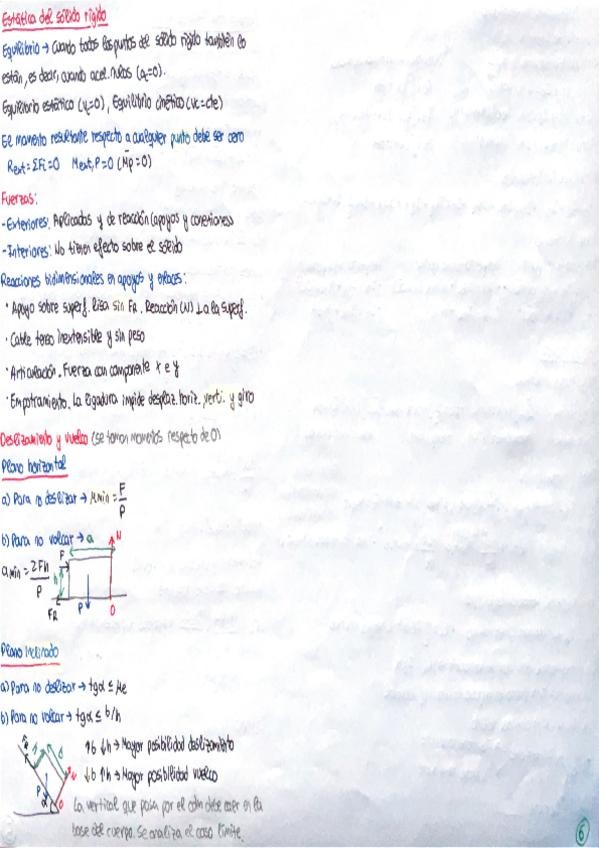 Estática del sólido rígido
Equilibrio → Cuando todos los puntos del sólido rígido también lo
están, es decir, cuando acel. nulas (a=0).
Equilibrio estático (v=0), Equilibrio cinético (v=cte)
El momento resultante respecto a cualquier punto debe ser cero
Rext = ΣFi = 0 Mext,P = 0 (Mp = 0)
Fuerzas:
-Exteriores: Aplicadas y de reacción (apoyos y conexiones)
-Interiores: No tienen efecto sobre el sólido
Reacciones bidimensionales en apoyos y enlaces:
· Apoyo sobre superf. lisa sin FR. Reacción (N) ⊥ a la superf.
· Cable tenso inextensible y sin peso
· Articulación. Fuerza con componente x e y
· Empotramiento. La ligadura impide desplaz. horiz. verti. y giro
Deslizamiento y vuelco (se toman momentos respecto de O)
Plano horizontal
a) Para no deslizar → μmin = F/P
b) Para no volcar →
amin = 2Fh/P
a
N
F
h
FR
P
O
Plano inclinado
a) Para no deslizar → tgα ≤ μe
b) Para no volcar → tgα ≤ b/h
↑b ↓h → Mayor posibilidad deslizamiento
↓b ↑h → Mayor posibilidad vuelco
P
α
O
La vertical que pasa por el cdm debe caer en la
base del cuerpo. Se analiza el caso límite.
6